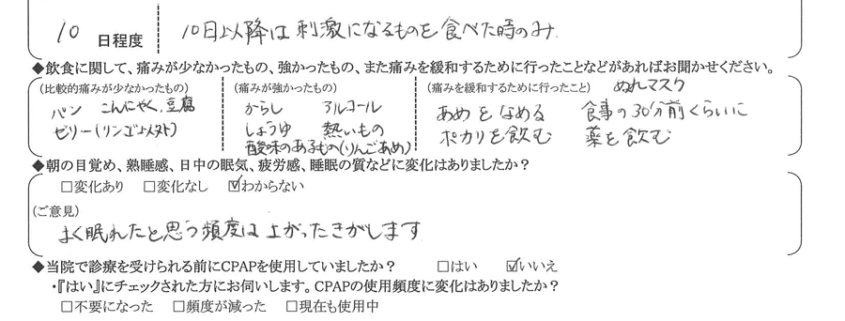 10 日程度 10日以降は刺激になるものを食べた時のみ
◆飲食に関して、痛みが少なかったもの、強かったもの、また痛みを緩和するために行ったことなどがあればお聞かせください。
(比較的痛みが少なかったもの) (痛みが強かったもの) (痛みを緩和するために行ったこと) ぬれマスク
パン こんにゃく、豆腐 からし アルコール あめをなめる 食事の30分前くらいに
ゼリー(リンゴ しょうゆ 熱いもの ポカリを飲む 薬を飲む
酸味のあるもの(りんごあめ)
◆朝の目覚め、熟睡感、日中の眠気、疲労感、睡眠の質などに変化はありましたか？
□変化あり □変化なし ☑わからない
(ご意見)
よく眠れたと思う頻度は上がったきがします
◆当院で診療を受けられる前にCPAPを使用していましたか？ □はい ☑いいえ
・『はい』にチェックされた方にお伺いします。CPAPの使用頻度に変化はありましたか？
□不要になった □頻度が減った □現在も使用中